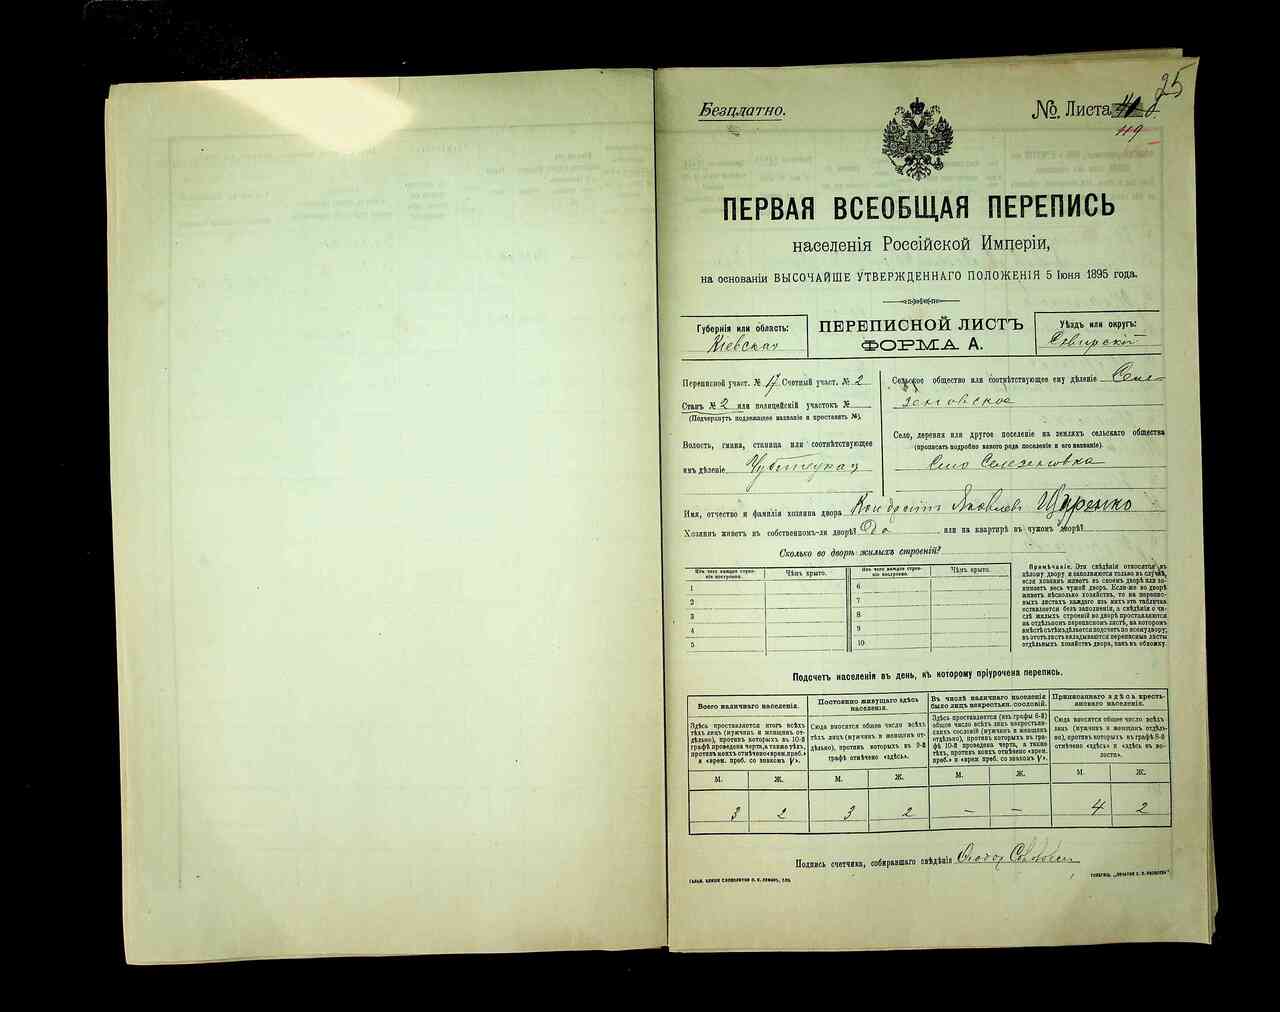 25
Безплатно.
№ Листа
49
ПЕРВАЯ ВСЕОБЩАЯ ПЕРЕПИСЬ
населенія Россійской Имперіи,
на основаніи ВЫСОЧАЙШЕ УТВЕРЖДЕННАГО ПОЛОЖЕНІЯ 5 Іюня 1895 года.
Губернія или область:
Кіевская
ПЕРЕПИСНОЙ ЛИСТЪ
ФОРМА А.
Уѣздъ или округъ:
Сквирскій
Переписной участ. № 17 Счетный участ. № 2
Станъ № 2 или полицейскій участокъ №
(Подчеркнуть подлежащее названіе и проставить №).
Волость, гмина, станица или соотвѣтствующее
имъ дѣленіе
Сельское общество или соотвѣтствующее ему дѣленіе Селе-
зеновское
Село, деревня или другое поселеніе на земляхъ сельскаго общества
(прописать подробно какого рода поселеніе и его названіе).
Село Селезеновка
Имя, отчество и фамилія хозяина двора Кондратъ Яковлевъ Царенко
Хозяинъ живетъ въ собственномъ-ли дворѣ? Да или на квартирѣ въ чужомъ дворѣ?
Сколько во дворѣ жилыхъ строеній?
Изъ чего каждое строе-
ніе построено.
Чѣмъ крыто.
1
2
3
4
5
Изъ чего каждое строе-
ніе построено.
Чѣмъ крыто.
6
7
8
9
10
Примѣчаніе. Эти свѣдѣнія относятся къ
цѣлому двору и заполняются только въ случаѣ,
если хозяинъ живетъ въ своемъ дворѣ или за-
нимаетъ весь чужой дворъ. Если-же во дворѣ
живетъ нѣсколько хозяйствъ, то на перепис-
ныхъ листахъ каждаго изъ нихъ эта табличка
оставляется безъ заполненія, а свѣдѣнія о чи-
слѣ жилыхъ строеній во дворѣ проставляются
на отдѣльномъ переписномъ листѣ, на которомъ
вмѣстѣ съ тѣмъ дѣлается подсчетъ по всему двору;
въ этотъ листъ вкладываются переписные листы
отдѣльныхъ хозяйствъ двора, какъ въ обложку.
Подсчетъ населенія въ день, къ которому пріурочена перепись.
Всего наличнаго населенія.
Здѣсь проставляется итогъ всѣхъ
тѣхъ лицъ (мужчинъ и женщинъ от-
дѣльно), противъ которыхъ въ 10-й
графѣ проведена черта, а также тѣхъ,
противъ коихъ отмѣчено «врем. преб.»
и «врем. преб. со знакомъ V».
М. Ж.
3 2
Постоянно живущаго здѣсь
населенія.
Сюда вносятся общее число всѣхъ
тѣхъ лицъ (мужчинъ и женщинъ от-
дѣльно), противъ которыхъ въ 9-й
графѣ отмѣчено «здѣсь».
М. Ж.
3 2
Въ числѣ наличнаго населенія
было лицъ некрестьян. сословій.
Здѣсь проставляется (изъ графы 6-й)
общее число всѣхъ лицъ некрестьян-
скихъ сословій (мужчинъ и женщинъ
отдѣльно), противъ которыхъ въ гра-
фѣ 10-й проведена черта, а также
тѣхъ, противъ коихъ отмѣчено «врем.
преб.» и «врем. преб. со знакомъ V».
М. Ж.
– –
Приписаннаго здѣсь кресть-
янскаго населенія.
Сюда вносятся общее число всѣхъ
лицъ (мужчинъ и женщинъ отдѣль-
но), противъ которыхъ въ графѣ 8-й
отмѣчено «здѣсь» и «здѣсь въ во-
лости».
М. Ж.
4 2
Подпись счетчика, собиравшаго свѣдѣнія